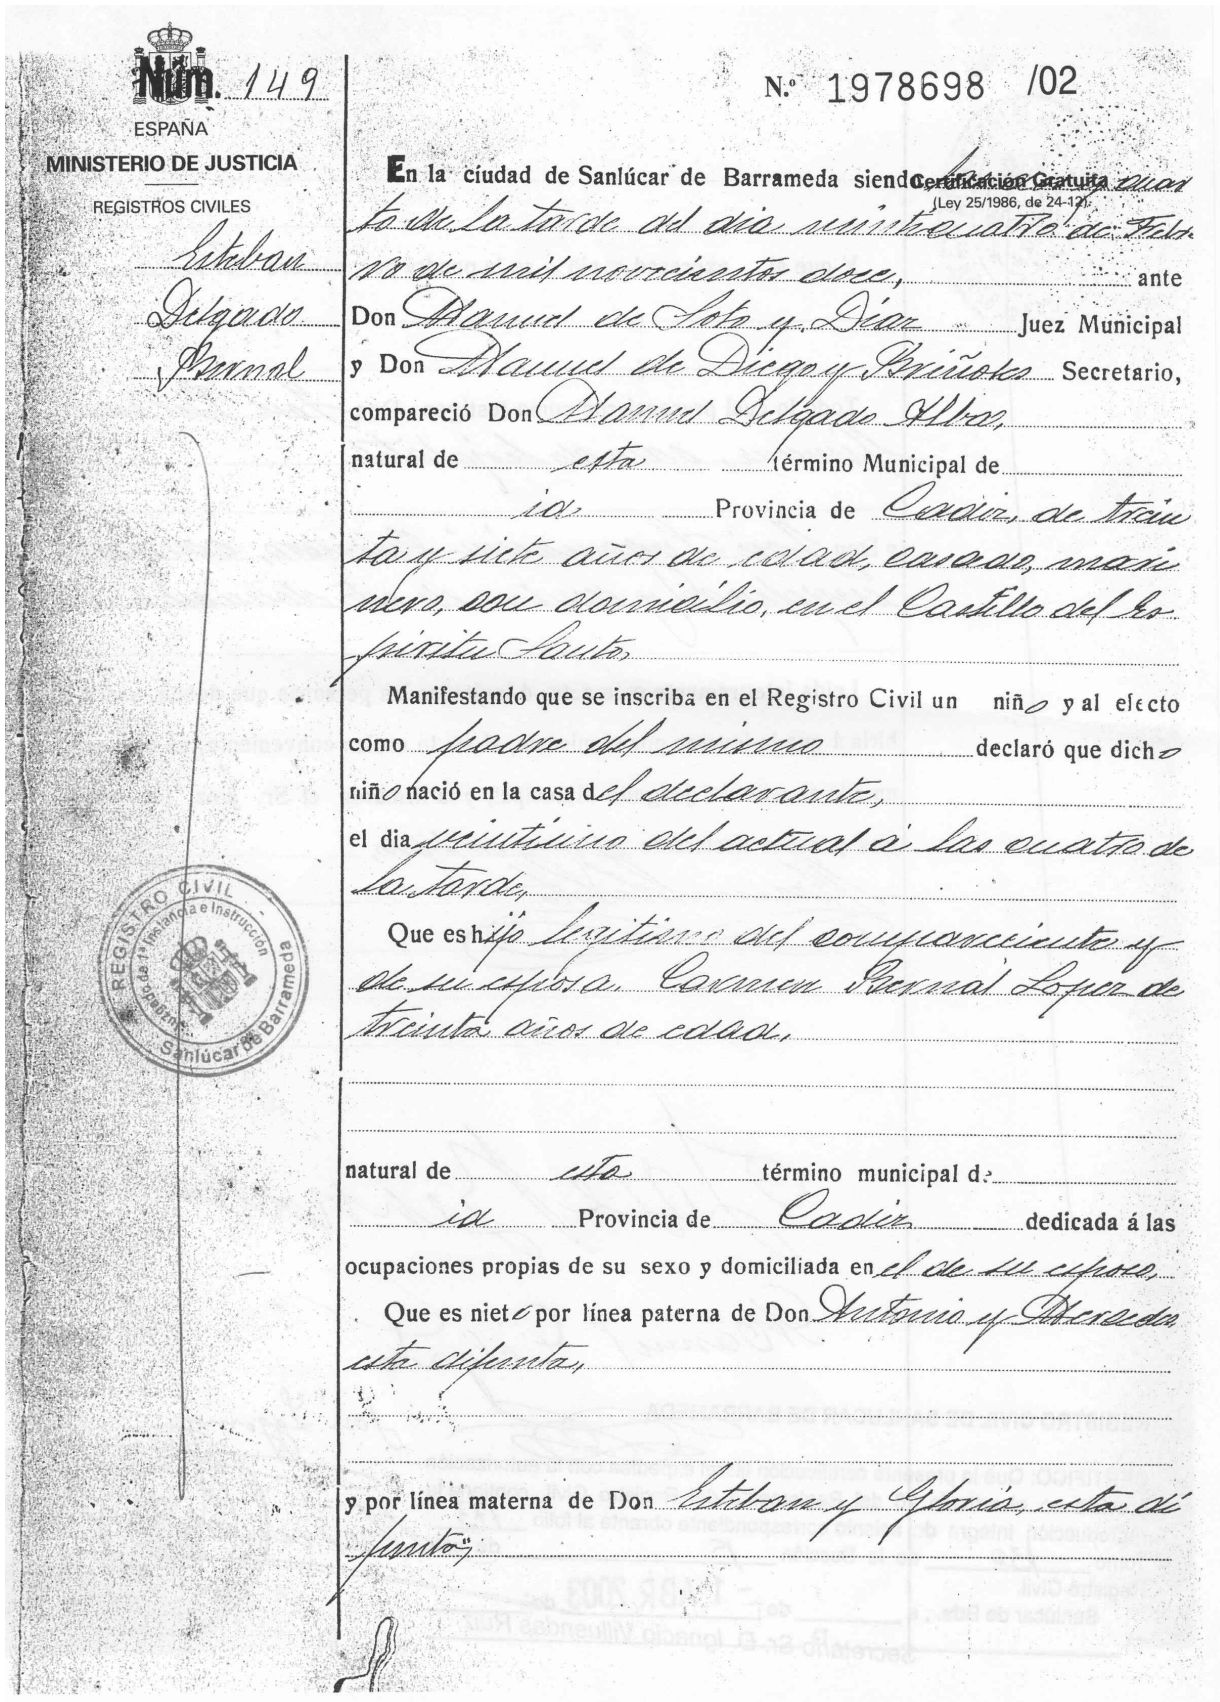 Núm. 149
ESPAÑA
MINISTERIO DE JUSTICIA
REGISTROS CIVILES
Esteban
Delgado
Bernal
N.º 1978698 /02
Certificación Gratuita
(Ley 25/1986, de 24-12)
En la ciudad de Sanlúcar de Barrameda siendo y cuar
to de la tarde del dia veinticuatro de Febre
ro de mil novecientos doce, ante
Don Manuel de Soto y Díaz Juez Municipal
y Don Manuel de Diego y Secretario,
compareció Don Manuel Delgado Alba,
natural de esta término Municipal de
id. Provincia de Cadiz, de trein
ta y siete años de edad, casado, mari
nero, con domicilio, en el Castillo del Es
piritu Santo,
Manifestando que se inscriba en el Registro Civil un niño y al efecto
como padre del mismo declaró que dicho
niño nació en la casa del declarante,
el dia veintiuno del actual á las cuatro de
la tarde,
Que es hijo legitimo del compareciente y
de su esposa, Carmen Bernal Lopez de
treinta años de edad,
natural de esta término municipal de
id Provincia de Cadiz dedicada á las
ocupaciones propias de su sexo y domiciliada en el de su esposo,
Que es nieto por línea paterna de Don Antonio y Mercedes,
esta difunta,
y por línea materna de Don Esteban y Gloria, esta di
funta,,
REGISTRO CIVIL
Juzgado de 1ª Instancia e Instrucción
Sanlúcar de Barrameda